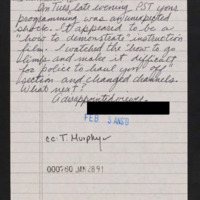 On Tues. late evening PST your
programming was an unexpected
shock. It appeared to be a
"how to demonstrate" instruction
film. I watched the "how to go
limp and make it difficult
for police to haul you off"
section and changed channels.
What next?
A disappointed viewer
FEB 5 ANS'D
cc: T. Murphy